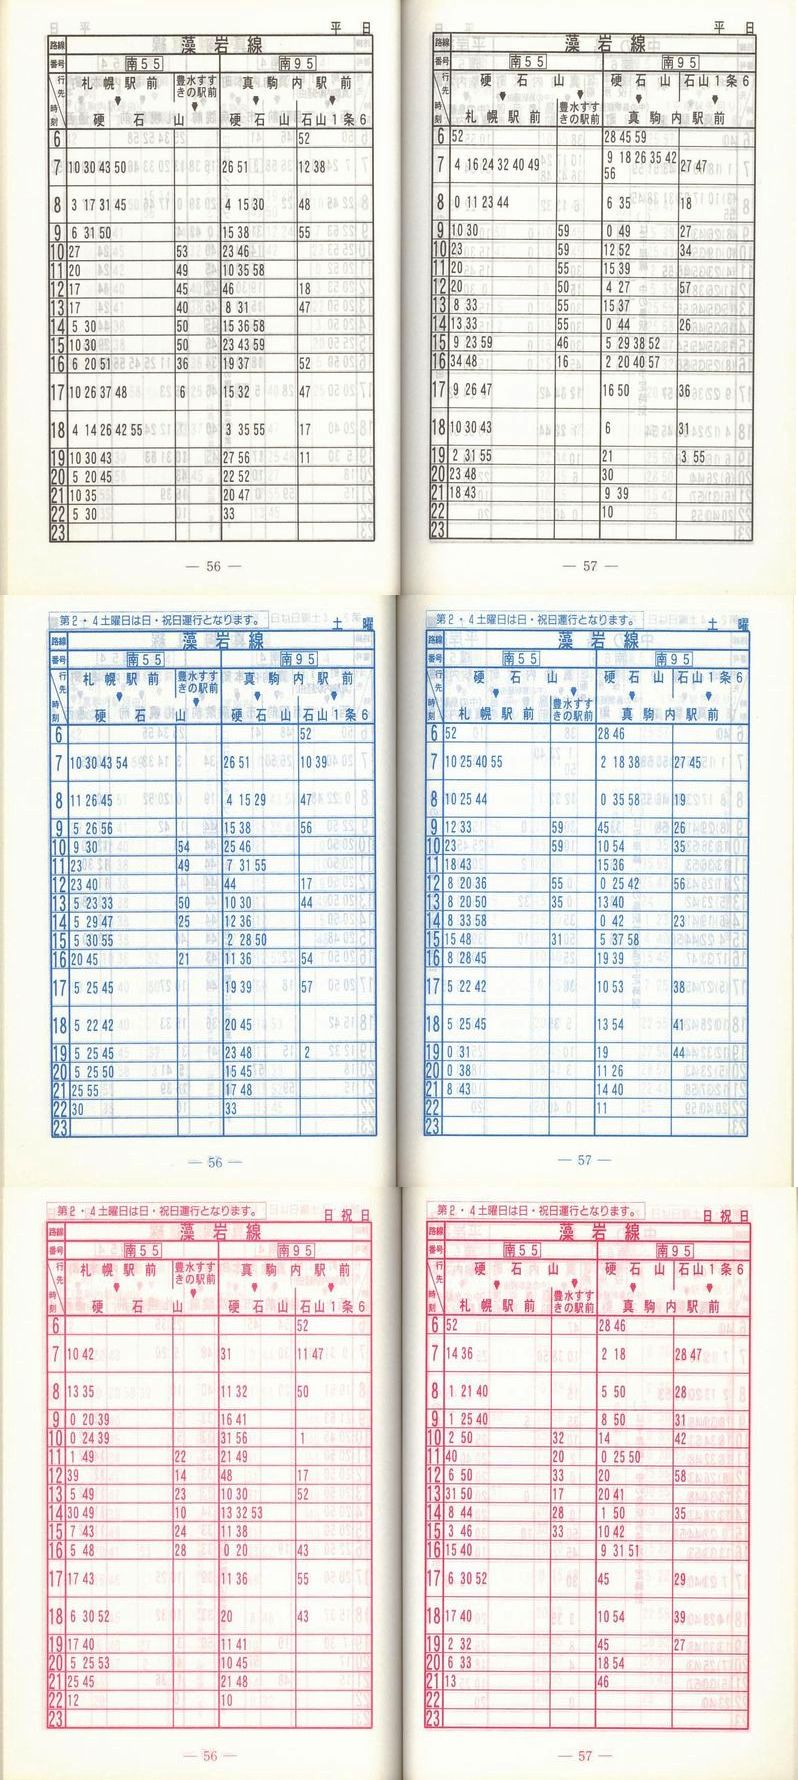 平 日
路線 藻 岩 線
番号 南５５ 南９５
行先 札 幌 駅 前 豊水すすきの駅前 真 駒 内 駅 前
時刻 硬 石 山 硬 石 山 石山１条６
6 52
7 10 30 43 50 26 51 12 38
8 3 17 31 45 4 15 30 48
9 6 31 50 15 38 55
10 27 53 23 46
11 20 49 10 35 58
12 17 45 46 18
13 17 40 8 31 47
14 5 30 50 15 36 58
15 10 30 50 23 43 59
16 6 20 51 36 19 37 52
17 10 26 37 48 6 15 32 47
18 4 14 26 42 55 3 35 55 17
19 10 30 43 27 56 11
20 5 20 45 22 52
21 10 35 20 47
22 5 30 33
23
— 56 —
平 日
路線 藻 岩 線
番号 南５５ 南９５
行先 硬 石 山 硬 石 山 石山１条６
時刻 札 幌 駅 前 豊水すすきの駅前 真 駒 内 駅 前
6 52 28 45 59
7 4 16 24 32 40 49 9 18 26 35 42 56 27 47
8 0 11 23 44 6 35 18
9 10 30 59 0 49 27
10 23 59 12 52 34
11 20 55 15 39
12 20 50 4 27 57
13 8 33 55 15 37
14 13 33 55 0 44 26
15 9 23 59 46 5 29 38 52
16 34 48 16 2 20 40 57
17 9 26 47 16 50 36
18 10 30 43 6 31
19 2 31 55 21 3 55
20 23 48 30
21 18 43 9 39
22 10
23
— 57 —
第２・４土曜日は日・祝日運行となります。 土 曜
路線 藻 岩 線
番号 南５５ 南９５
行先 札 幌 駅 前 豊水すすきの駅前 真 駒 内 駅 前
時刻 硬 石 山 硬 石 山 石山１条６
6 52
7 10 30 43 54 26 51 10 39
8 11 26 45 4 15 29 47
9 5 26 56 15 38 56
10 9 30 54 25 46
11 23 49 7 31 55
12 23 40 44 17
13 5 23 33 50 10 30 44
14 5 29 47 25 12 36
15 5 30 55 2 28 50
16 20 45 21 11 36 54
17 5 25 45 19 39 57
18 5 22 42 20 45
19 5 25 45 23 48 2
20 5 25 50 15 45
21 25 55 17 48
22 30 33
23
— 56 —
第２・４土曜日は日・祝日運行となります。 土 曜
路線 藻 岩 線
番号 南５５ 南９５
行先 硬 石 山 硬 石 山 石山１条６
時刻 札 幌 駅 前 豊水すすきの駅前 真 駒 内 駅 前
6 52 28 46
7 10 25 40 55 2 18 38 27 45
8 10 25 44 0 35 58 19
9 12 33 59 45 26
10 23 59 10 54 35
11 18 43 15 36
12 8 20 36 55 0 25 42 56
13 8 20 50 35 13 40
14 8 33 58 0 42 23
15 15 48 31 5 37 58
16 8 28 45 19 39
17 5 22 42 10 53 38
18 5 25 45 13 54 41
19 0 31 19 44
20 0 38 11 26
21 8 43 14 40
22 11
23
— 57 —
第２・４土曜日は日・祝日運行となります。 日 祝 日
路線 藻 岩 線
番号 南５５ 南９５
行先 札 幌 駅 前 豊水すすきの駅前 真 駒 内 駅 前
時刻 硬 石 山 硬 石 山 石山１条６
6 52
7 10 42 31 11 47
8 13 35 11 32 50
9 0 20 39 16 41
10 0 24 39 31 56 1
11 1 49 22 21 49
12 39 14 48 17
13 5 49 23 10 30 52
14 30 49 10 13 32 53
15 7 43 24 11 38
16 5 48 28 0 20 43
17 17 43 11 36 55
18 6 30 52 20 43
19 17 40 11 41
20 5 25 53 10 45
21 25 45 21 48
22 12 10
23
— 56 —
第２・４土曜日は日・祝日運行となります。 日 祝 日
路線 藻 岩 線
番号 南５５ 南９５
行先 硬 石 山 硬 石 山 石山１条６
時刻 札 幌 駅 前 豊水すすきの駅前 真 駒 内 駅 前
6 52 28 46
7 14 36 2 18 28 47
8 1 21 40 5 50 28
9 1 25 40 8 50 31
10 2 50 32 14 42
11 40 20 0 25 50
12 6 50 33 20 58
13 31 50 17 20 41
14 8 44 28 1 50 35
15 3 46 33 10 42
16 15 40 9 31 51
17 6 30 52 45 29
18 17 40 10 54 39
19 2 32 45 27
20 6 33 18 54
21 13 46
22
23
— 57 —